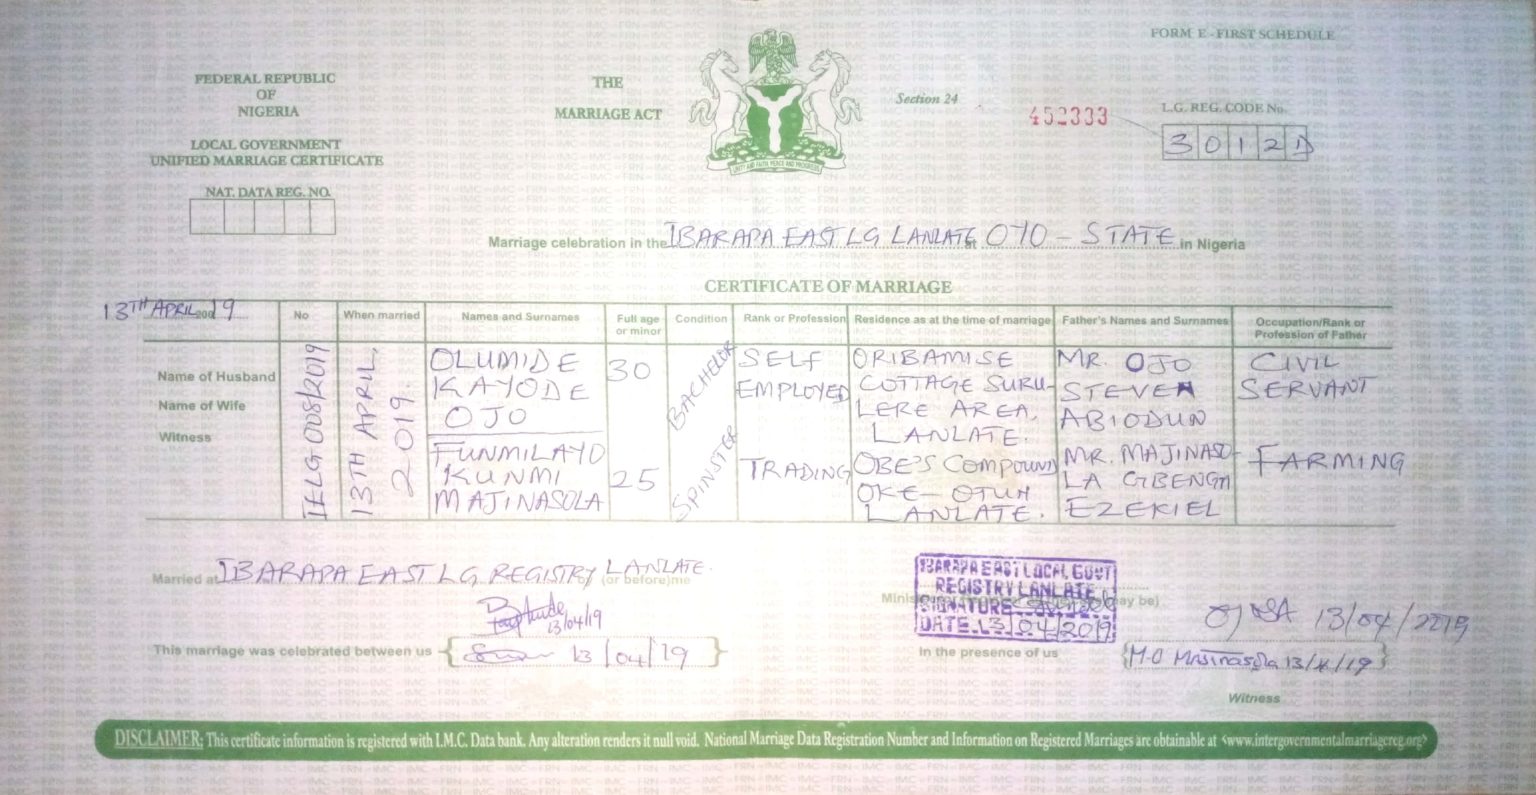 FORM E - FIRST SCHEDULE
FEDERAL REPUBLIC
OF
NIGERIA
LOCAL GOVERNMENT
UNIFIED MARRIAGE CERTIFICATE
NAT. DATA REG. NO.
THE
MARRIAGE ACT
UNITY AND FAITH PEACE AND PROGRESS
Section 24
452333
L.G. REG. CODE No.
3012D
Marriage celebration in the IBARAPA EAST LG LANLATE at OYO - STATE in Nigeria
CERTIFICATE OF MARRIAGE
13TH APRIL 200 19
No
When married
Names and Surnames
Full age or minor
Condition
Rank or Profession
Residence as at the time of marriage
Father's Names and Surnames
Occupation/Rank or Profession of Father
Name of Husband
Name of Wife
Witness
IELG 008/2019
13TH APRIL, 2019.
OLUMIDE
KAYODE
OJO
30
BACHELOR
SELF
EMPLOYED
ORIBAMISE
COTTAGE SURU-
LERE AREA,
LANLATE.
MR. OJO
STEVEN
ABIODUN
CIVIL
SERVANT
FUNMILAYO
KUNMI
MAJINASOLA
25
SPINSTER
TRADING
OBE'S COMPOUND
OKE-OTUN
LANLATE.
MR. MAJINASO-
LA GBENGA
EZEKIEL
FARMING
Married at IBARAPA EAST LG REGISTRY LANLATE. (or before) me
13/04/19
This marriage was celebrated between us { 13/04/19 }
IBARAPA EAST LOCAL GOVT
REGISTRY LANLATE
SIGNATURE
DATE 13/04/2019
ay be)
13/04/2019
In the presence of us { M.O Majinasola 13/4/19 }
Witness
DISCLAIMER: This certificate information is registered with I.M.C. Data bank. Any alteration renders it null void. National Marriage Data Registration Number and Information on Registered Marriages are obtainable at <www.intergovernmentalmarriagereg.org>